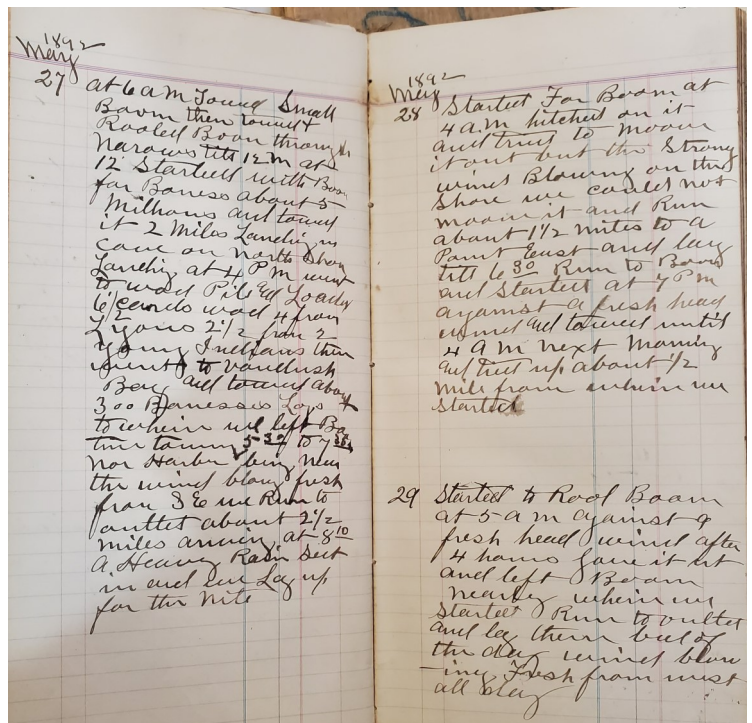 1892
May
27 at 6 a m Towed Small
Boom then round &
Rooled Boom through
Narows till 12 M at
12 Started with Boom
for Boness about 5
Millions and towed
it 2 Miles Landing in
cove on North Shore
Landing at 4 P M went
to wood Pile and Loaded
6 1/2 cords wood 4 from
Lyons 2 1/2 from 2
Young Indians then
went to Vandush
Bay and towed about
300 Bonesses Logs
to wherin we left Bo
time towing 5 30 to 7
nor Harber being Near
the wind blowing fresh
from S E we Run to
outlet about 2 1/2
miles arriving at 8 10
A Heavy Rain Set
in and we Lay up
for the Nite
1892
May
28 Started For Boom at
4 a.m. hitched on it
and tried to moove
it out but the Strong
wind Blowing on the
Shore we could not
moove it and Run
about 1 1/2 miles to a
Point East and lay
till 6 30 Run to Boom
and Started at 7 P M
against a fresh head
wind and towed until
4 A M next Morning
and tied up about 1/2
mile from wherin we
Started
29 Started to Rool Boom
at 5 a m against a
fresh head wind after
4 hours gave it up
and left Boom
nearly wherin we
Started Run to outlet
and lay there bal of
the day wind blow
-ing Fresh from west
all day